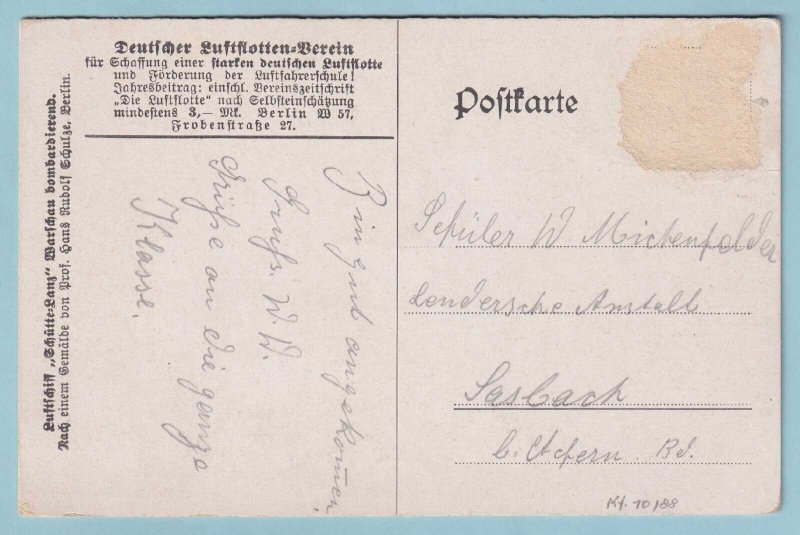 Deutscher Luftflotten-Verein
für Schaffung einer starken deutschen Luftflotte
und Förderung der Luftfahrerschule!
Jahresbeitrag: einschl. Vereinszeitschrift
„Die Luftflotte" nach Selbsteinschätzung
mindestens 3,— Mk. Berlin W 57,
Frobenstraße 27.
Luftschiff „Schütte-Lanz" Warschau bombardierend.
Nach einem Gemälde von Prof. Hans Rudolf Schulze, Berlin.
Bin gut angekommen.
Gruß. W. W.
Grüße an die ganze
Klasse.
Postkarte
Schüler W Michenfelder
Lendersche Anstalt
Sasbach
b. Achern. Bd.
Kf. 10/88